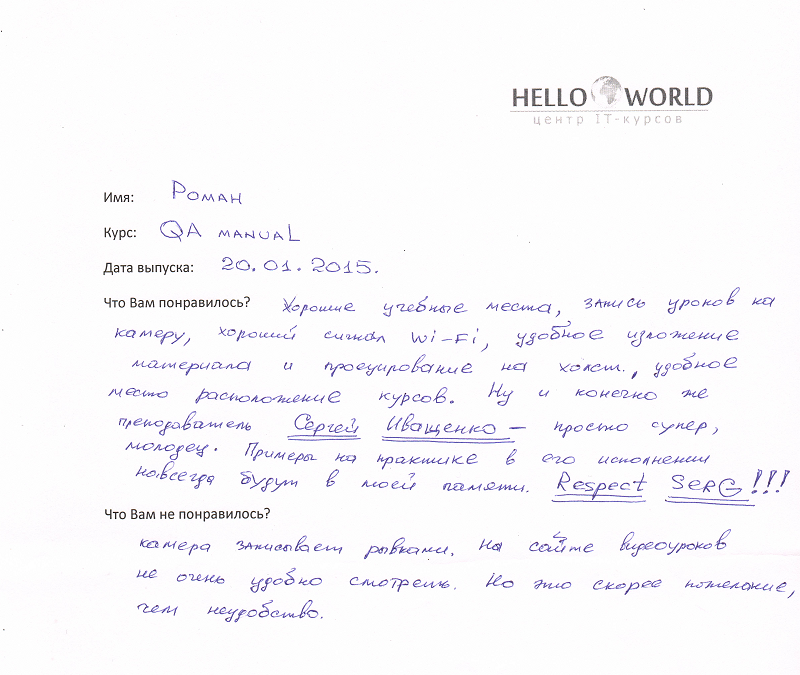 HELLO WORLD
центр IT-курсов
Имя: Роман
Курс: QA manual
Дата выпуска: 20.01.2015.
Что Вам понравилось? Хорошие учебные места, запись уроков на
камеру, хороший сигнал Wi-Fi, удобное изложение
материала и проецирование на холст., удобное
место расположение курсов. Ну и конечно же
преподаватель Сергей Иващенко – просто супер,
молодец. Примеры на практике в его исполнении
навсегда будут в моей памяти. Respect SerG!!!
Что Вам не понравилось?
камера записывает рывками. На сайте видеоуроков
не очень удобно смотреть. Но это скорее пожелание,
чем неудобство.